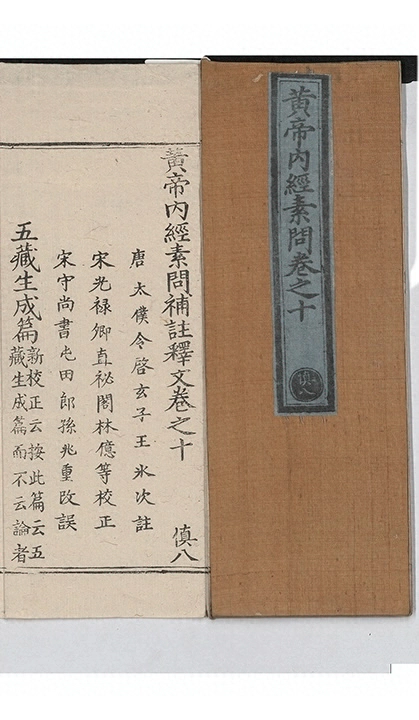 黃帝內經素問卷之十
慎八
黃帝內經素問補註釋文卷之十
慎八
唐太僕令啓玄子王氷次註
宋光禄卿直祕閣林億等校正
宋守尚書屯田郎孫兆重改誤
五藏生成篇新校正云按此篇云五
藏生成篇而不云論者